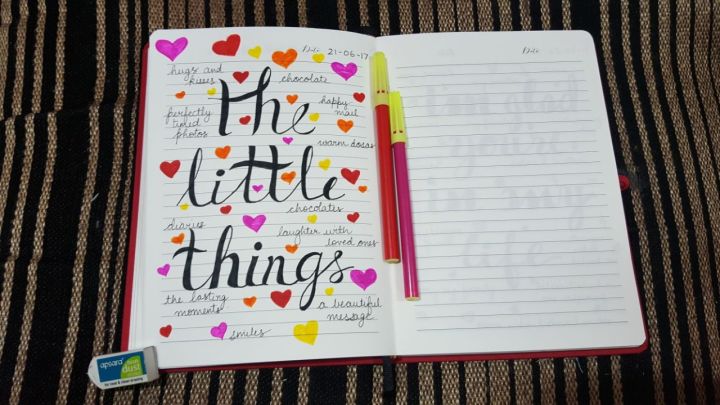 Date 21-06-17
hugs and
kisses
chocolate
the
perfectly
timed
photos
happy
mail
warm dosas
little
chocolates
diaries
laughter with
loved ones
things
the lasting
moments
a beautiful
message
smiles
Date
apsara
non
dust